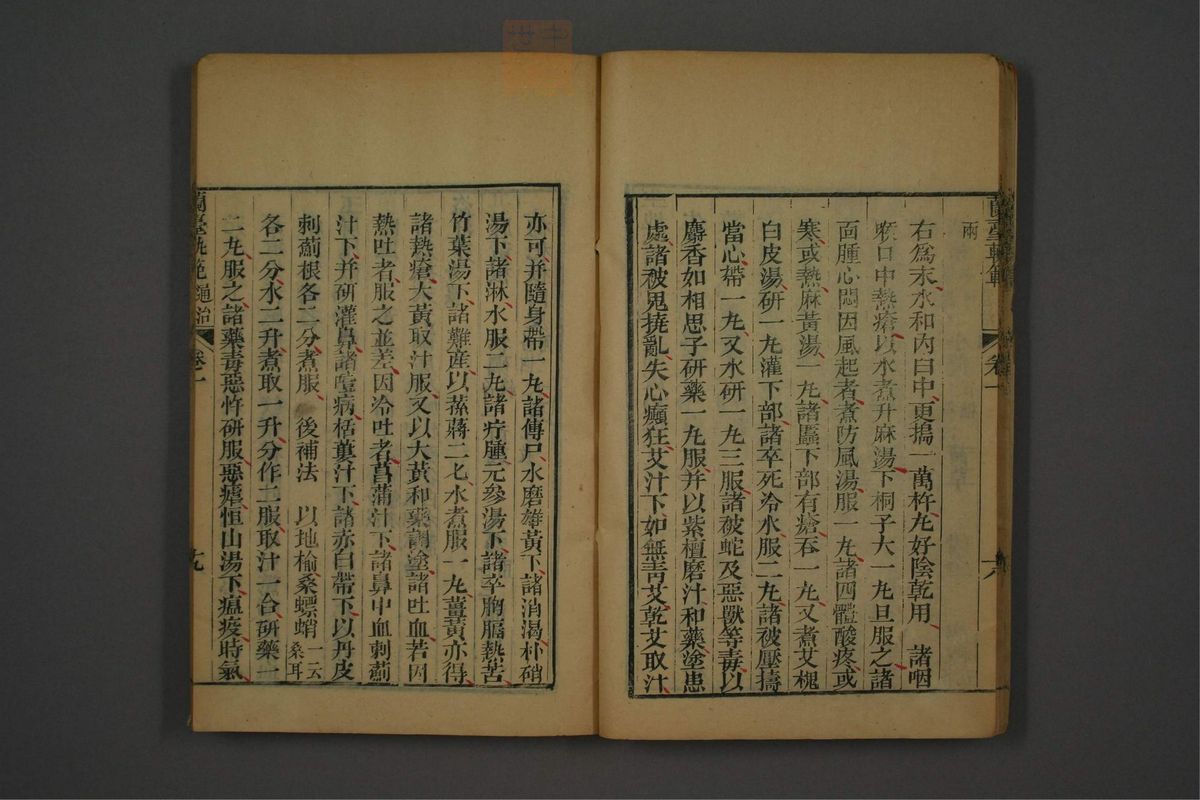 兩
右爲末水和內臼中更搗一萬杵丸好陰乾用　諸咽
喉口中熱瘡以水煮升麻湯下桐子大一丸旦服之諸
面腫心悶因風起者煮防風湯服一丸諸四體酸疼或
寒或熱麻黃湯一丸諸䘌下部有瘡吞一丸又煮艾槐
白皮湯研一丸灌下部諸卒死冷水服二丸諸被壓擣
當心帶一丸又水研一丸三服諸被蛇及惡獸等毒以
麝香如相思子研藥一丸服并以紫檀磨汁和藥塗患
處諸被鬼撓亂失心癲狂艾汁下如無青艾乾艾取汁
卷一
亦可并隨身帶一丸諸傳尸水磨雄黃下諸消渴朴硝
湯下諸淋水服二丸諸疔腫元參湯下諸卒胸膈熱苦
竹葉湯下諸難產以蒸蔣二七水煮服一丸薑黃亦得
諸熱瘡大黃取汁服又以大黃和藥調塗諸吐血若因
熱吐者服之並差因冷吐者菖蒲汁下諸鼻中血刺薊
汁下并研灌鼻諸噎病栝蔞汁下諸赤白帶下以丹皮
刺薊根各二分煮服　後補法　以地榆桑螵蛸一云桑耳
各二分水二升煮取一升分作二服取汁一合研藥一
二丸服之諸藥毒惡忤研服惡瘧恒山湯下瘟疫時氣
蘭臺軌範 通治 卷一 十九